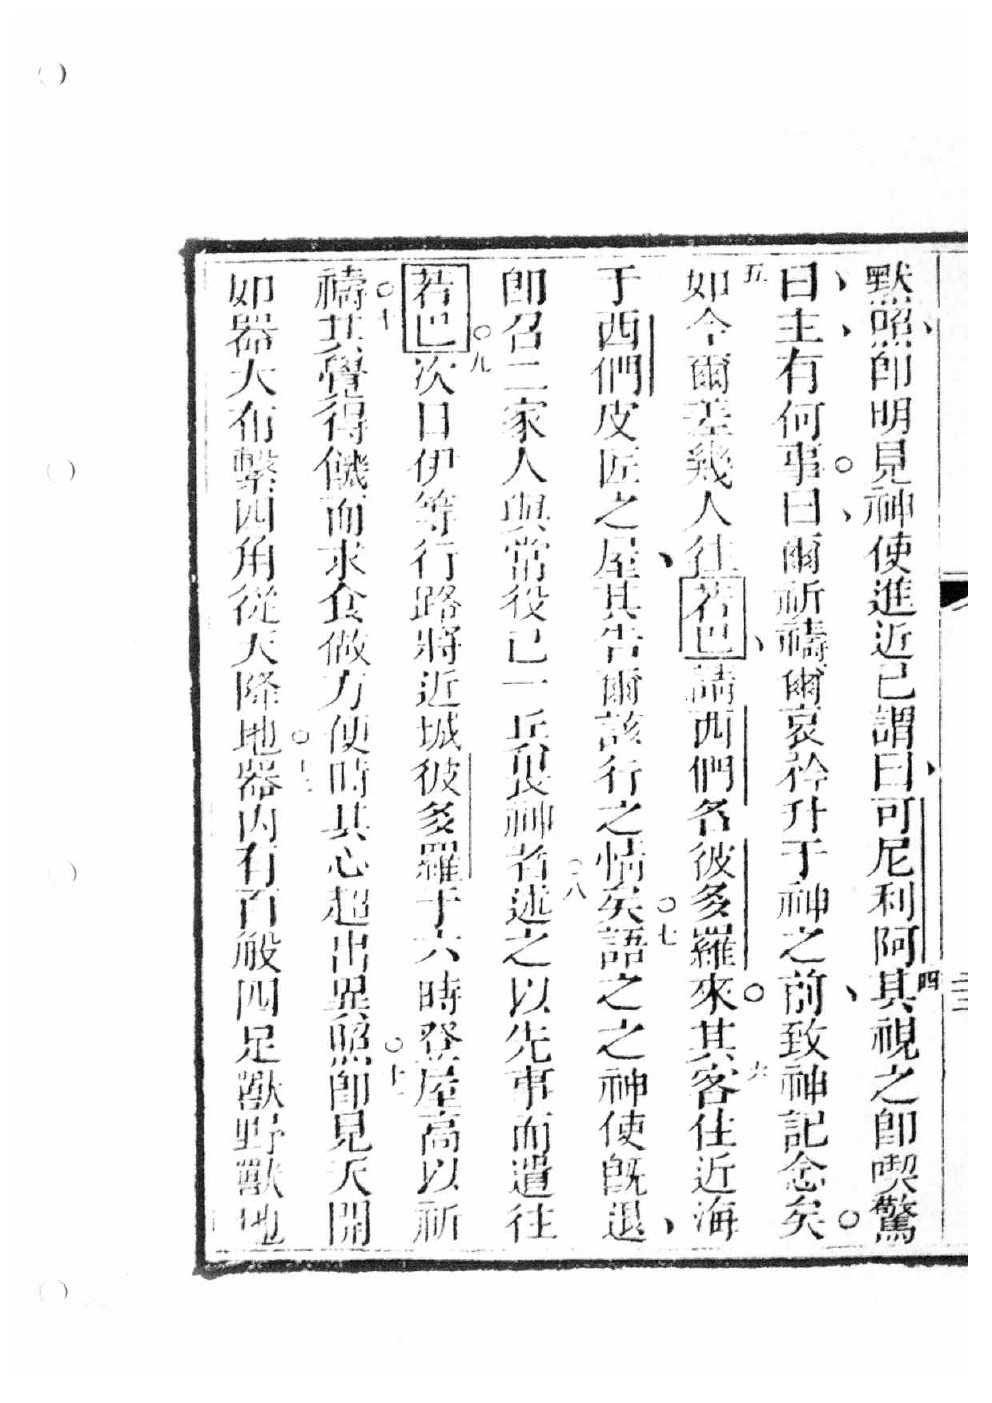 默照卽明見神使進近已謂曰可尼利阿四其視之卽喫驚
曰主有何事曰爾祈禱爾哀矜升于神之前致神記念矣
五如今爾差幾人往若巴請西們名彼多羅來六其客住近海
于西們皮匠之屋其告爾該行之情矣七語之之神使旣退
卽召二家人與常役已一丘畏神者八述之以先事而遣往
若巴九次日伊等行路將近城彼多羅于六時登屋高以祈
禱十其覺得饑而求食做方便時其心超出異照十一卽見天開
如器大布繫四角從天降地十二器內有百般四足獸野獸地
三